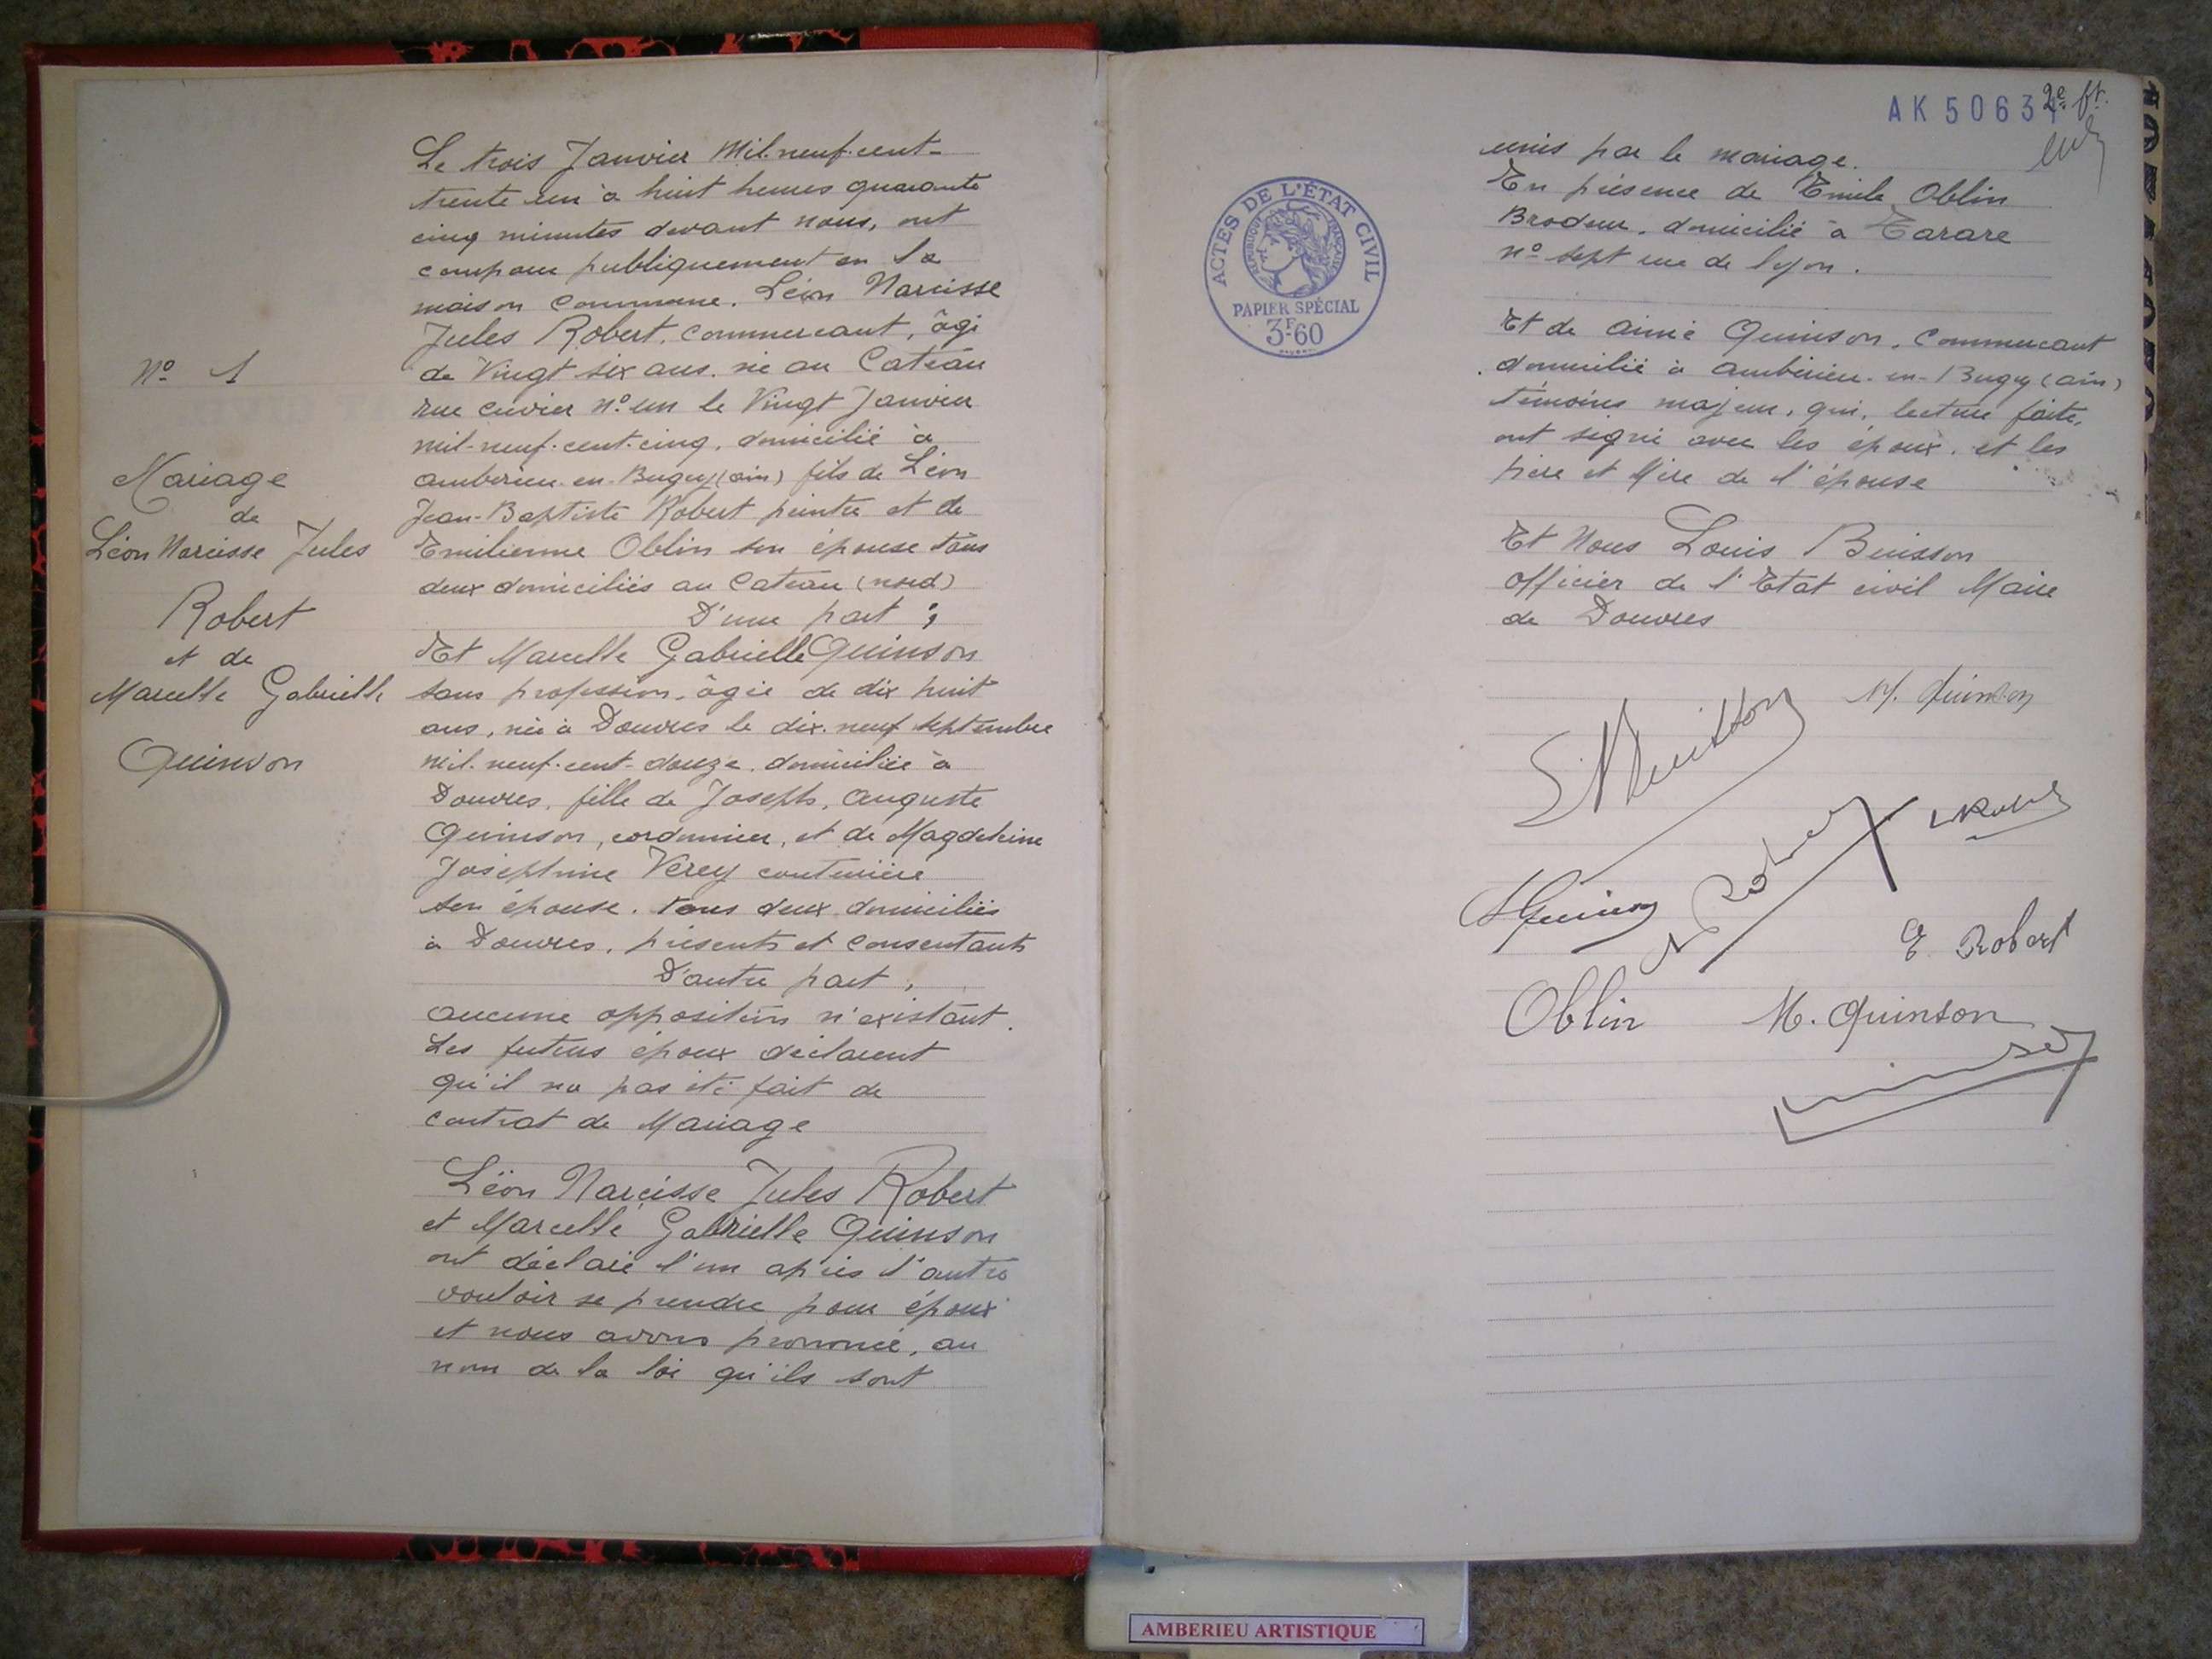 Nº 1
Mariage
de
Léon Narcisse Jules
Robert
et de
Marcelle Gabrielle
Quinson
Le trois Janvier Mil-neuf-cent-
trente un à huit heures quarante
cinq minutes devant nous, ont
comparu publiquement en la
maison commune. Léon Narcisse
Jules Robert, commercant, âgé
de Vingt six ans. né au Cateau
rue cuvier nº un le Vingt Janvier
mil-neuf-cent-cinq, domicilié à
Ambérieu-en-Bugey (ain) fils de Léon
Jean-Baptiste Robert peintre et de
Emilienne Oblin son épouse tous
deux domiciliés au Cateau (nord)
D'une part ;
Et Marcelle Gabrielle Quinson
sans profession, âgée de dix huit
ans, née à Douvres le dix-neuf septembre
mil-neuf-cent-douze, domiciliée à
Douvres, fille de Joseph, Auguste
Quinson, cordonnier, et de Magdeleine
Joséphine Verey couturière
son épouse. tous deux domiciliés
à Douvres, présents et consentants
D'autre part ;
aucune opposition n'existant.
Les futurs époux déclarent
qu'il na pas été fait de
contrat de Mariage
Léon Narcisse Jules Robert
et Marcelle Gabrielle Quinson
ont déclaré l'un après l'autre
vouloir se prendre pour époux
et nous avons prononcé, au
nom de la loi qu'ils sont
AK 50634
2e ft.
unis par le mariage.
En présence de Emile Oblin
Brodeur, domicilié à Tarare
nº sept rue de lyon.
Et de Aimé Quinson, Commercant
domicilié à ambérieu-en-Bugey (ain)
témoins majeur, qui, lecture faite,
ont signé avec les époux, et les
père et Mère de l'épouse
Et Nous Louis Buisson
Officier de l'Etat civil Maire
de Douvres
ACTES DE L'ÉTAT CIVIL
RÉPUBLIQUE FRANÇAISE
PAPIER SPÉCIAL
3F60
M. Quinson
L Buisson
Quinson
Robert
E Robert
Oblin
M. Quinson
AMBERIEU ARTISTIQUE